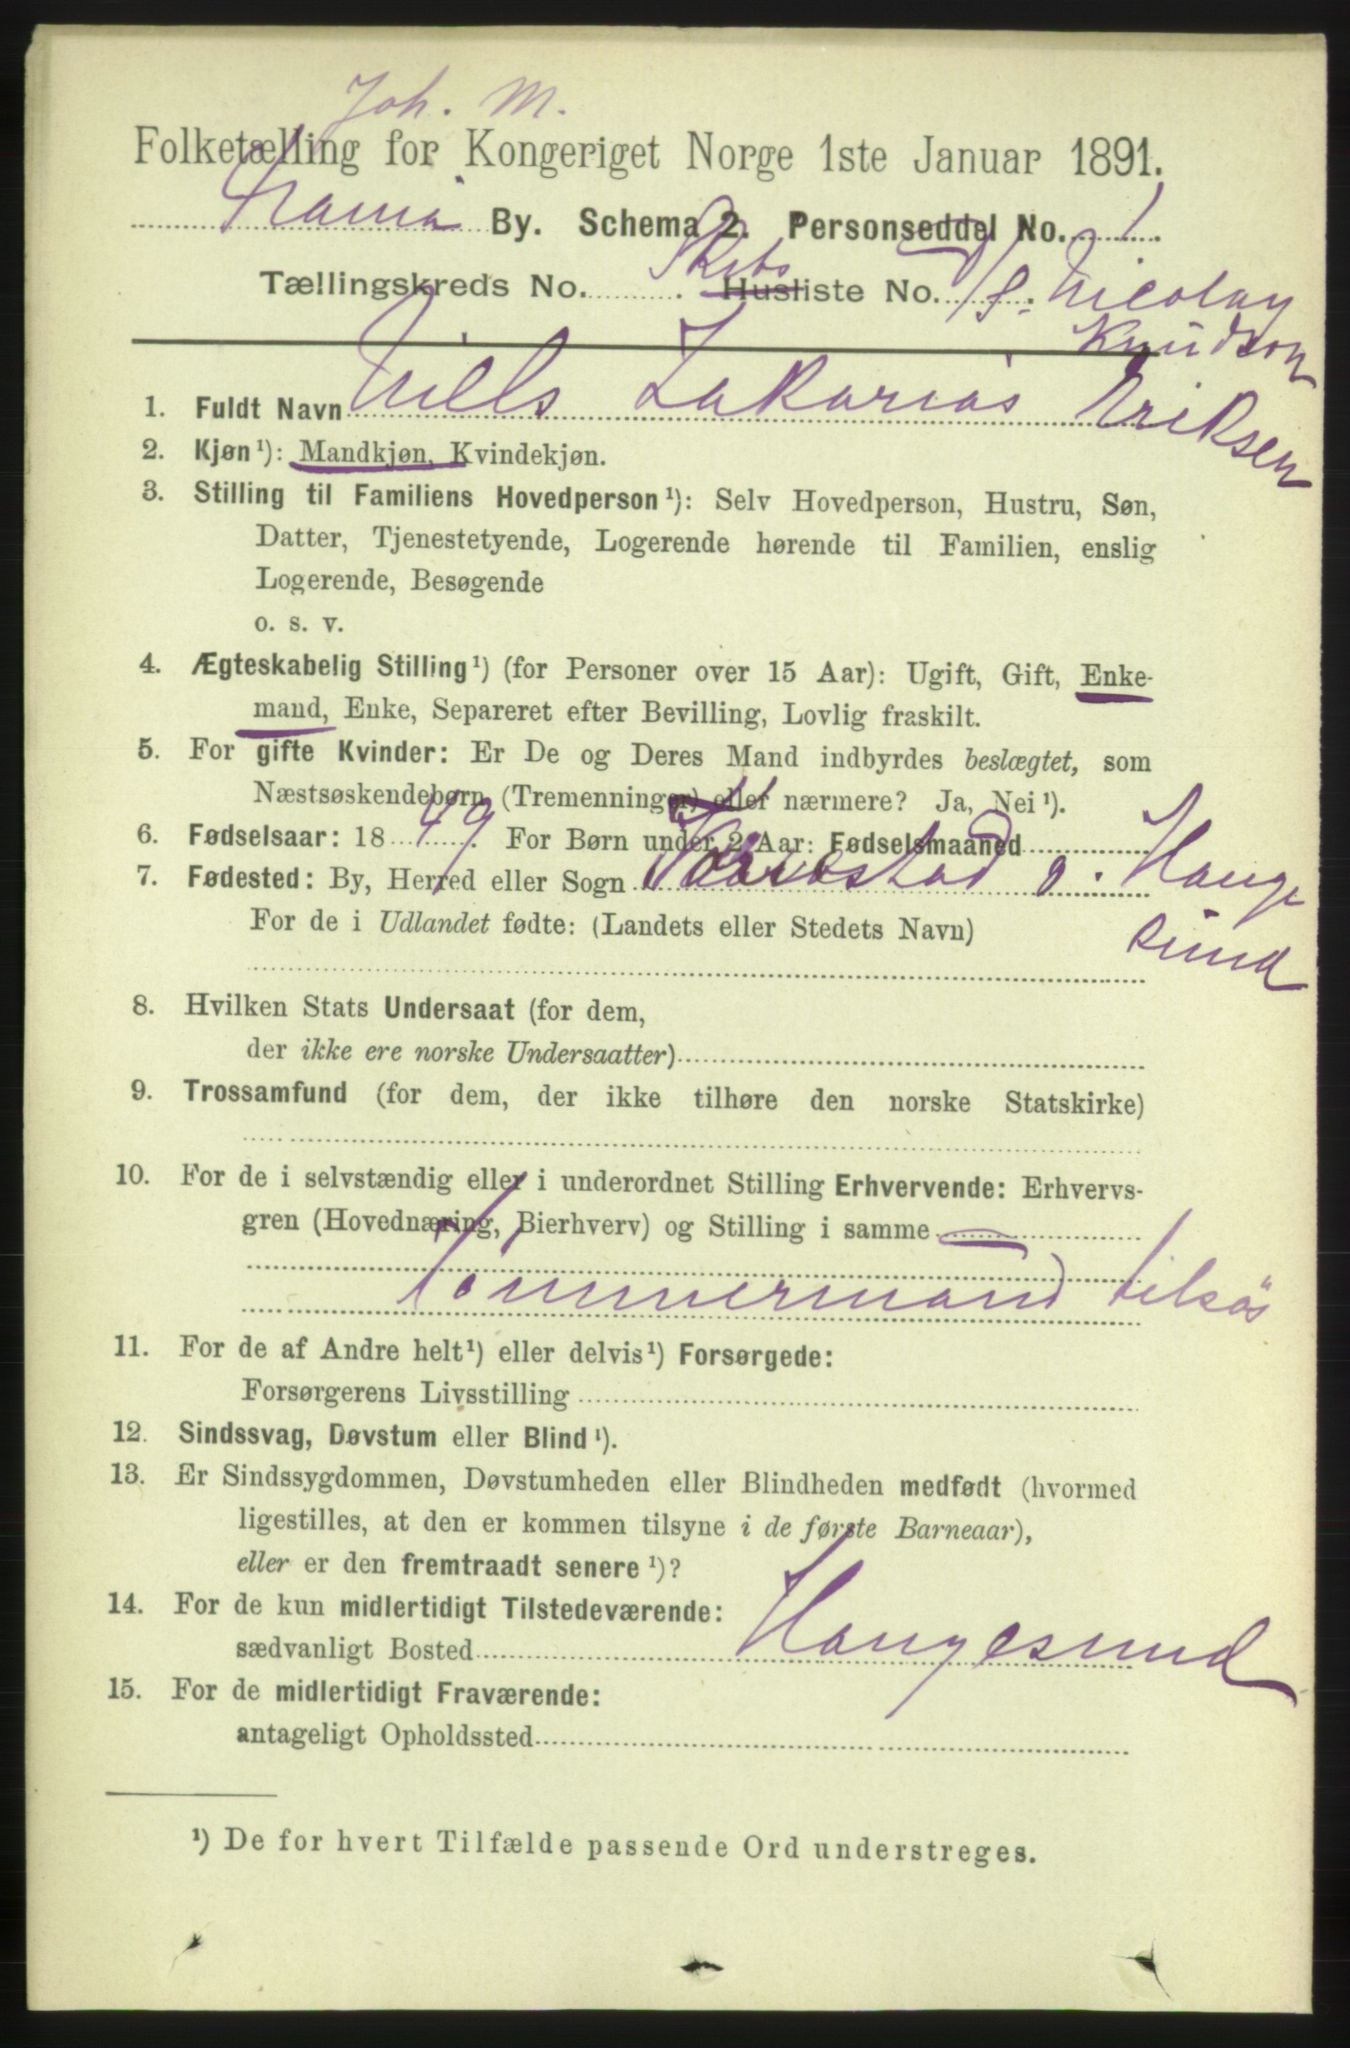 Joh. M.
Folketælling for Kongeriget Norge 1ste Januar 1891.
By. Schema 2. Personseddel No. 1.
Tællingskreds No. . Skibs Husliste No. D/S. Nicolay
Knudson
1. Fuldt Navn Nills Zakarias Eriksen
2. Kjøn¹): Mandkjøn, Kvindekjøn.
3. Stilling til Familiens Hovedperson¹): Selv Hovedperson, Hustru, Søn,
Datter, Tjenestetyende, Logerende hørende til Familien, enslig
Logerende, Besøgende
o. s. v.
4. Ægteskabelig Stilling¹) (for Personer over 15 Aar): Ugift, Gift, Enke-
mand, Enke, Separeret efter Bevilling, Lovlig fraskilt.
5. For gifte Kvinder: Er De og Deres Mand indbyrdes beslægtet, som
Næstsøskendebørn (Tremenninger) eller nærmere? Ja, Nei¹).
6. Fødselsaar: 1849. For Børn under 2 Aar: Fødselsmaaned
7. Fødested: By, Herred eller Sogn p. Hauge
sund
For de i Udlandet fødte: (Landets eller Stedets Navn)
8. Hvilken Stats Undersaat (for dem,
der ikke ere norske Undersaatter)
9. Trossamfund (for dem, der ikke tilhøre den norske Statskirke)
10. For de i selvstændig eller i underordnet Stilling Erhvervende: Erhvervs-
gren (Hovednæring, Bierhverv) og Stilling i samme
Tømmermand tilsøs
11. For de af Andre helt¹) eller delvis¹) Forsørgede:
Forsørgerens Livsstilling
12. Sindssvag, Døvstum eller Blind¹).
13. Er Sindssygdommen, Døvstumheden eller Blindheden medfødt (hvormed
ligestilles, at den er kommen tilsyne i de første Barneaar),
eller er den fremtraadt senere¹)?
14. For de kun midlertidigt Tilstedeværende:
sædvanligt Bosted Haugesund
15. For de midlertidigt Fraværende:
antageligt Opholdssted
¹) De for hvert Tilfælde passende Ord understreges.